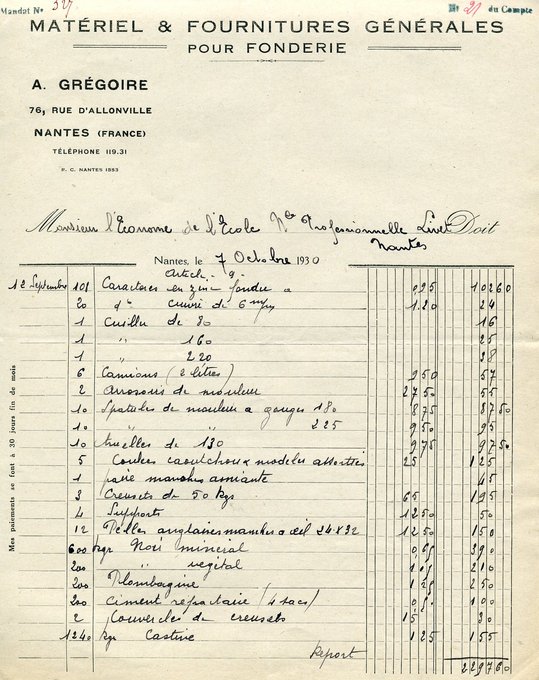 Mandat No 327
No 21 du Compte
MATÉRIEL & FOURNITURES GÉNÉRALES
POUR FONDERIE
A. GRÉGOIRE
76, RUE D'ALLONVILLE
NANTES (FRANCE)
TÉLÉPHONE 119.31
P. C. NANTES 1853
Monsieur l'Econome de l'Ecole Nle Professionnelle Livet Doit
Nantes
Nantes, le 7 Octobre 1930
Article 9.
12 Septembre 108 Caracteres en zinc fondu a 0,95 102 60
20 do cuivre de 6 m/m 1.20 24
1 Cuiller de 80 16
1 " 160 25
1 " 220 38
6 Camions (2 litres) 9 50 57
2 Arrosoirs de mouleur 27 50 55
10 Spatules de mouleur a gouges 180 8 75 87 50
10 " " 225 9 50 95
10 truelles de 130 9 75 97 50
5 Coulees caoutchoux modeles assorties 25 125
1 paire manches amiante 45
3 Creusets de 50 kgs 65 195
4 Supports 12 50 50
12 Pelles anglaises manches a œil 24 x 32 12 50 150
600 kgr Noir mineral 0,65 390
200 " vegetal 1,05 210
200 Plombagine 1,25 250
200 ciment refractaire (4 sacs) 0,5. 100
2 Couvercles de creusets 15 30
1240 kgr Castine 125 155
Report 2297 60
Mes paiements se font à 30 jours fin de mois